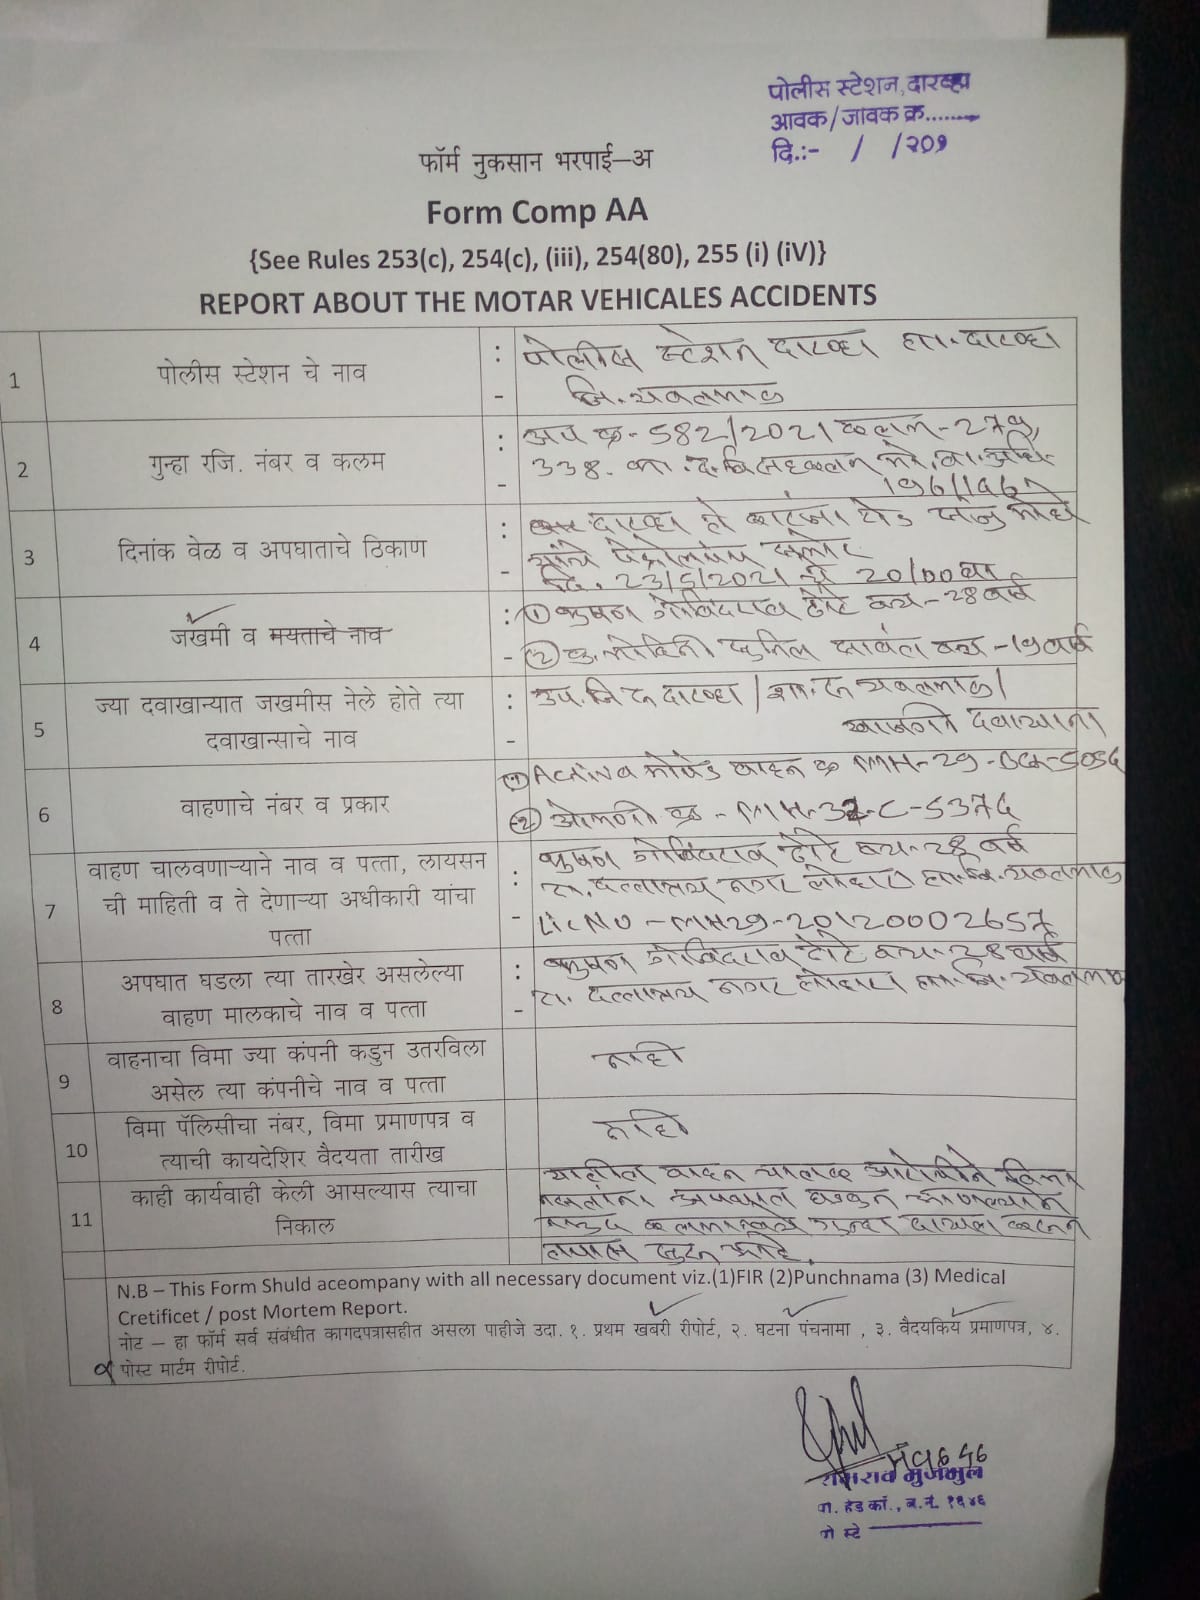 पोलीस स्टेशन, दारव्हा
आवक/जावक क्र.........
दि.:- / /२०१
फॉर्म नुकसान भरपाई–अ
Form Comp AA
{See Rules 253(c), 254(c), (iii), 254(80), 255 (i) (iV)}
REPORT ABOUT THE MOTAR VEHICALES ACCIDENTS
1 पोलीस स्टेशन चे नाव :- पोलीस स्टेशन दारव्हा ता. दारव्हा
जि. यवतमाळ
2 गुन्हा रजि. नंबर व कलम :- अप क्र- 582/2021 कलम- 279,
338. भा. द. वि सहकलम मो. वा. अधि.
3 दिनांक वेळ व अपघाताचे ठिकाण :- दारव्हा ते कारंजा रोड
पेट्रोलपंप समोर
दि. 23/6/2021 चे 20/00 वा
4 जखमी व मयताचे नाव :- ① गोविंदराव वय- 28 वर्ष
② कु. मोहिनी सुनिल सावंत वय - 19 वर्ष
5 ज्या दवाखान्यात जखमीस नेले होते त्या :- उप. जि रु दारव्हा / यवतमाळ /
दवाखान्साचे नाव खाजगी दवाखाना
6 वाहणाचे नंबर व प्रकार ① Activa मोपेड वाहन क्र MH-29-
② ओमनी क्र - MH-32-C-5376
7 वाहण चालवणाऱ्याने नाव व पत्ता, लायसन :- गोविंदराव वय- 28 वर्ष
ची माहिती व ते देणाऱ्या अधीकारी यांचा रा. दत्तात्रय नगर लोहारा ता. जि. यवतमाळ
पत्ता Lic No - MH29-20120002657
8 अपघात घडला त्या तारखेर असलेल्या :- गोविंदराव वय- 28 वर्ष
वाहण मालकाचे नाव व पत्ता रा. दत्तात्रय नगर लोहारा ता. जि. यवतमाळ
9 वाहनाचा विमा ज्या कंपनी कडुन उतरविला नाही
असेल त्या कंपनीचे नाव व पत्ता
10 विमा पॅलिसीचा नंबर, विमा प्रमाणपत्र व नाही
त्याची कायदेशिर वैदयता तारीख
11 काही कार्यवाही केली आसल्यास त्याचा यातील वाहन चालक आरोपीने विमा
निकाल नसताना अपघात घडवुन आणल्याने
नमुद कलमान्वये गुन्हा दाखल करुन
तपास सुरु आहे.
N.B – This Form Shuld aceompany with all necessary document viz.(1)FIR (2)Punchnama (3) Medical
Cretificet / post Mortem Report.
नोट – हा फॉर्म सर्व संबंधीत कागदपत्रासहीत असला पाहीजे उदा. १. प्रथम खबरी रीपोर्ट, २. घटना पंचनामा , ३. वैदयकिय प्रमाणपत्र, ४.
पोस्ट मार्टम रीपोर्ट.
रामराव मुजमुल
पो. हेड कॉ., ब. नं. १६४६
पो स्टे